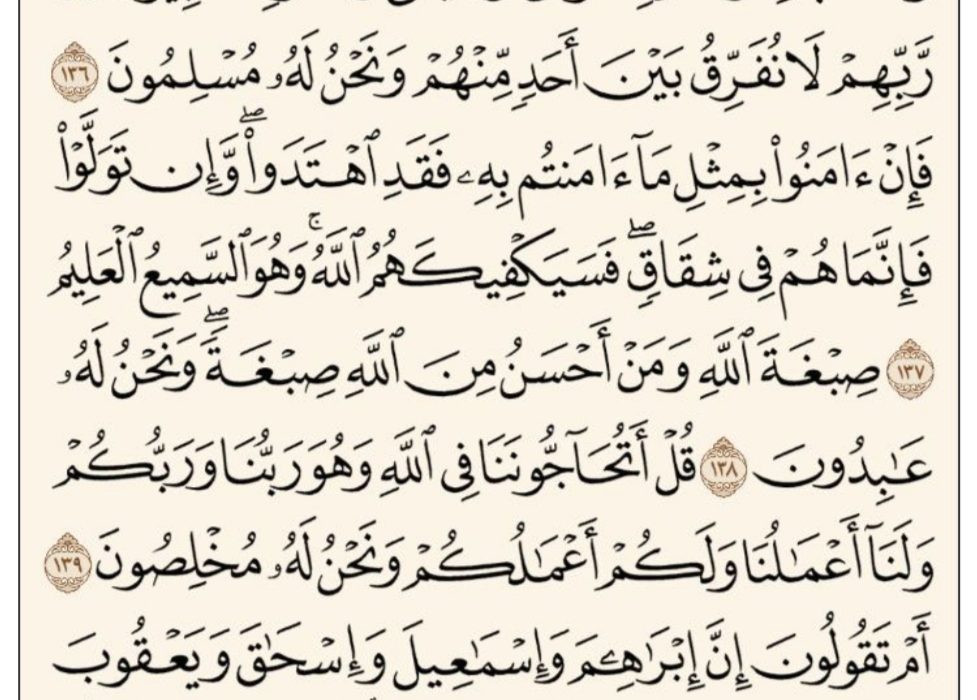 رَّبِّهِمْ لَا نُفَرِّقُ بَيْنَ أَحَدٍ مِّنْهُمْ وَنَحْنُ لَهُۥ مُسْلِمُونَ ١٣٦
فَإِنْ ءَامَنُوا۟ بِمِثْلِ مَآ ءَامَنتُم بِهِۦ فَقَدِ ٱهْتَدَوا۟ ۖ وَّإِن تَوَلَّوْا۟
فَإِنَّمَا هُمْ فِى شِقَاقٍ ۖ فَسَيَكْفِيكَهُمُ ٱللَّهُ ۚ وَهُوَ ٱلسَّمِيعُ ٱلْعَلِيمُ
١٣٧ صِبْغَةَ ٱللَّهِ وَمَنْ أَحْسَنُ مِنَ ٱللَّهِ صِبْغَةً ۖ وَنَحْنُ لَهُۥ
عَـٰبِدُونَ ١٣٨ قُلْ أَتُحَآجُّونَنَا فِى ٱللَّهِ وَهُوَ رَبُّنَا وَرَبُّكُمْ
وَلَنَآ أَعْمَـٰلُنَا وَلَكُمْ أَعْمَـٰلُكُمْ وَنَحْنُ لَهُۥ مُخْلِصُونَ ١٣٩
أَمْ تَقُولُونَ إِنَّ إِبْرَٰهِـۧمَ وَإِسْمَـٰعِيلَ وَإِسْحَـٰقَ وَيَعْقُوبَ